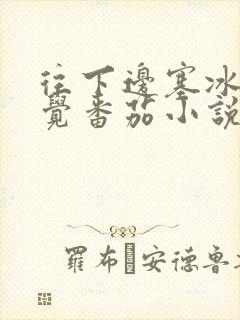 往下邊塞冰
覺番茄小說
羅布·安德魯